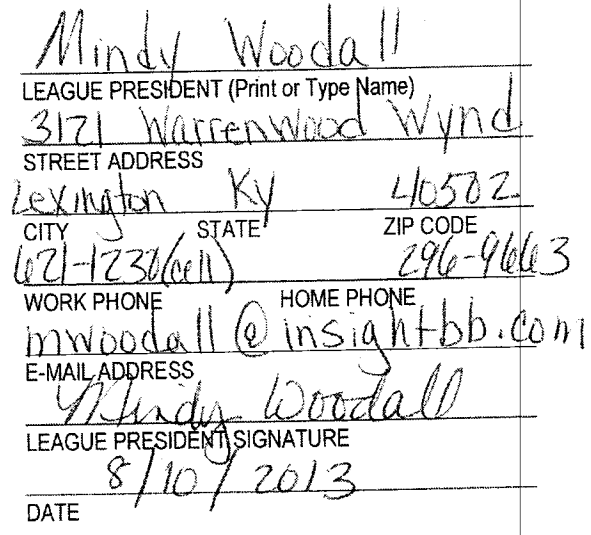 Mindy Woodall
LEAGUE PRESIDENT (Print or Type Name)
3121 Warrenwood Wynd
STREET ADDRESS
Lexington Ky 40502
CITY STATE ZIP CODE
621-1230(cell) 296-9663
WORK PHONE HOME PHONE
mwoodall@insightbb.com
E-MAIL ADDRESS
Mindy Woodall
LEAGUE PRESIDENT SIGNATURE
8/10/2013
DATE